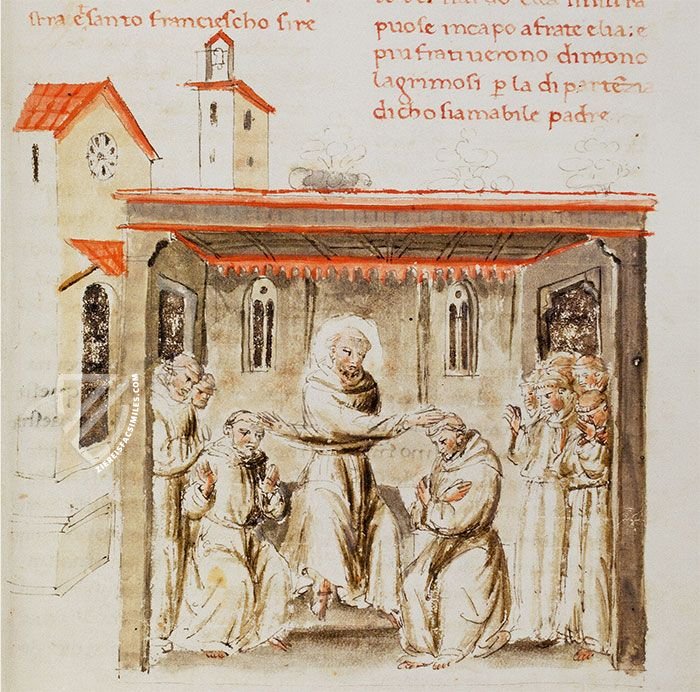 stra e santo franciescho sire
puose incapo afrate elia: e
piu frati uerono dintorno
lagrimosi p la di partēzia
dicho siamabile padre
ZIEREISFACSIMILES.COM